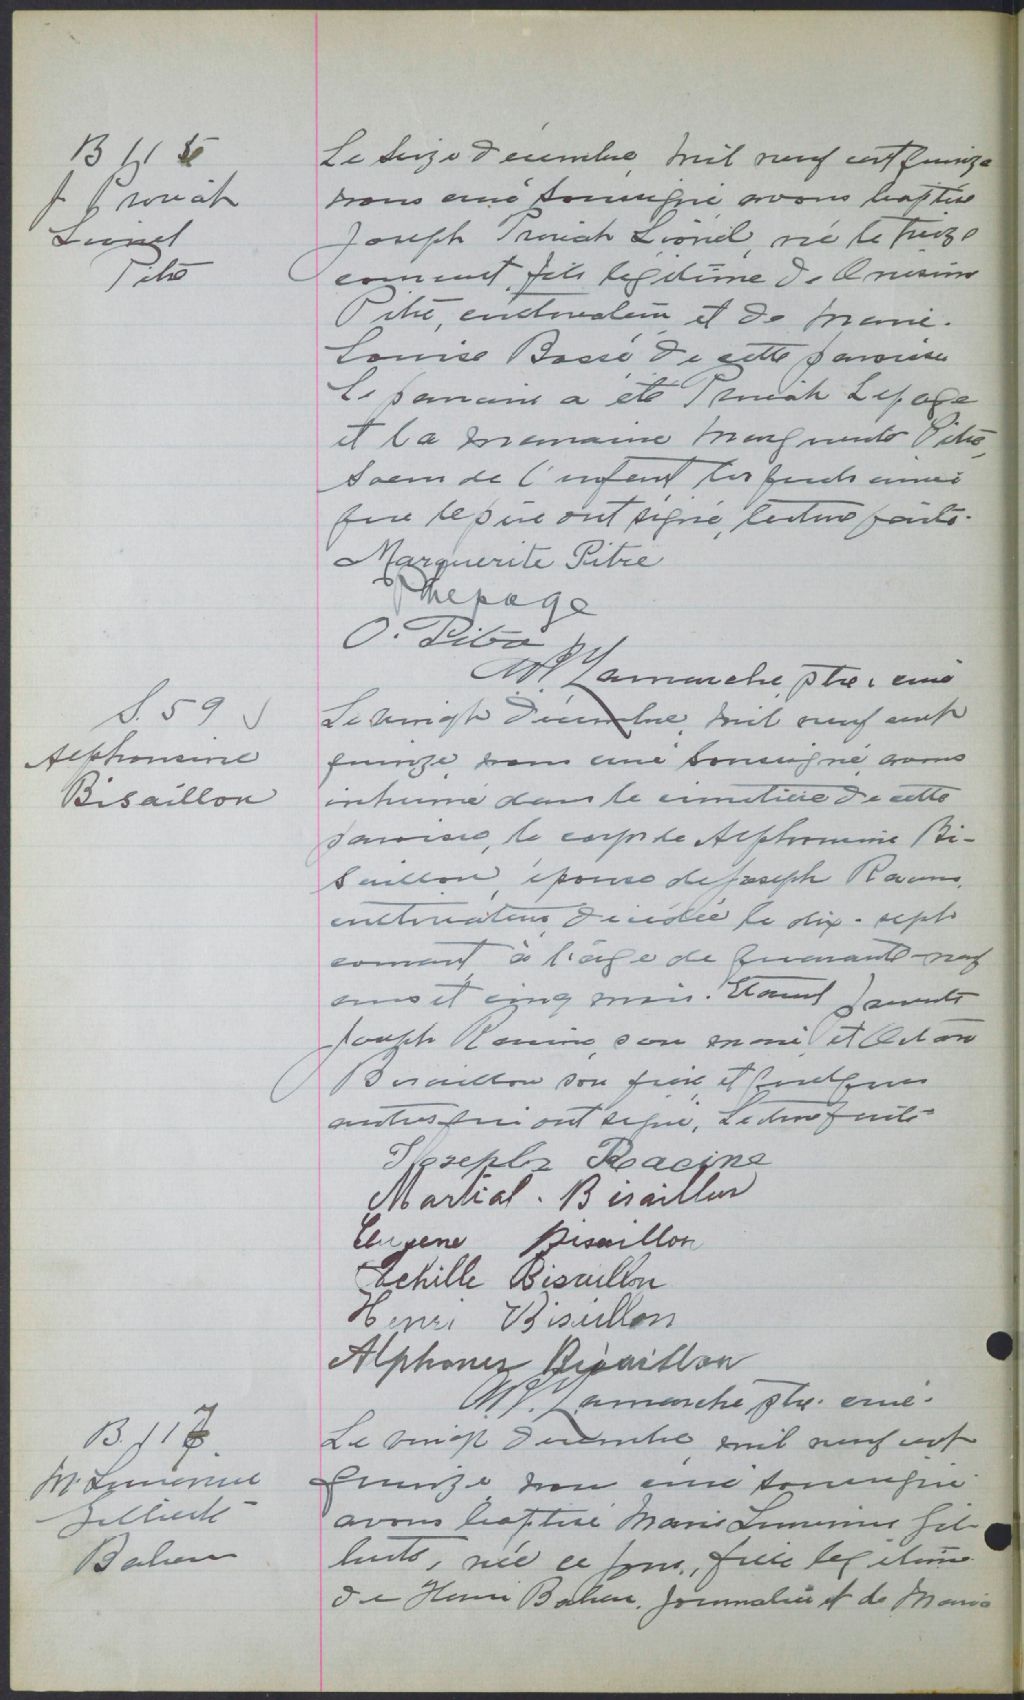 B 115
J. Proviat
Lionel
Pitre
Le seize décembre mil neuf cent quinze
nous curé soussigné avons baptisé
Joseph Lionel, né le treize
courant, fils légitime de Onésime
Pitre, cultivateur et de Marie-
Louise Bossé de cette paroisse
Le parrain a été Lepage
et la marraine Marguerite Pitre,
soeur de l'enfant lesquels ainsi
que le père ont signé, lecture faite.
Marguerite Pitre
P Lepage
O. Pitre
Lamarche ptre. curé
S. 59
Alphonsine
Bisaillon
Le vingt décembre, mil neuf cent
quinze, nous curé soussigné, avons
inhumé dans le cimetière de cette
paroisse, le corps de Alphonsine Bi-
saillon, épouse de Joseph Racine,
cultivateur, décédée le dix-sept
courant, à l'âge de quarante-neuf
ans et cinq mois. Etaient présents
Joseph Racine, son mari, et
Bisaillon son frère, et quelques
autres qui ont signé. Lecture faite
Joseph Racine
Martial. Bisaillon
Eugene Bisaillon
Achille Bisaillon
Henri Bisaillon
Alphonse Bisaillon
Lamarche ptre. curé.
B. 117
M.
Gilberte
Le vingt décembre mil neuf cent
quinze, nous curé soussigné
avons baptisé Marie Gil-
berte, née ce jour, fille légitime
de Henri journalier et de Maria